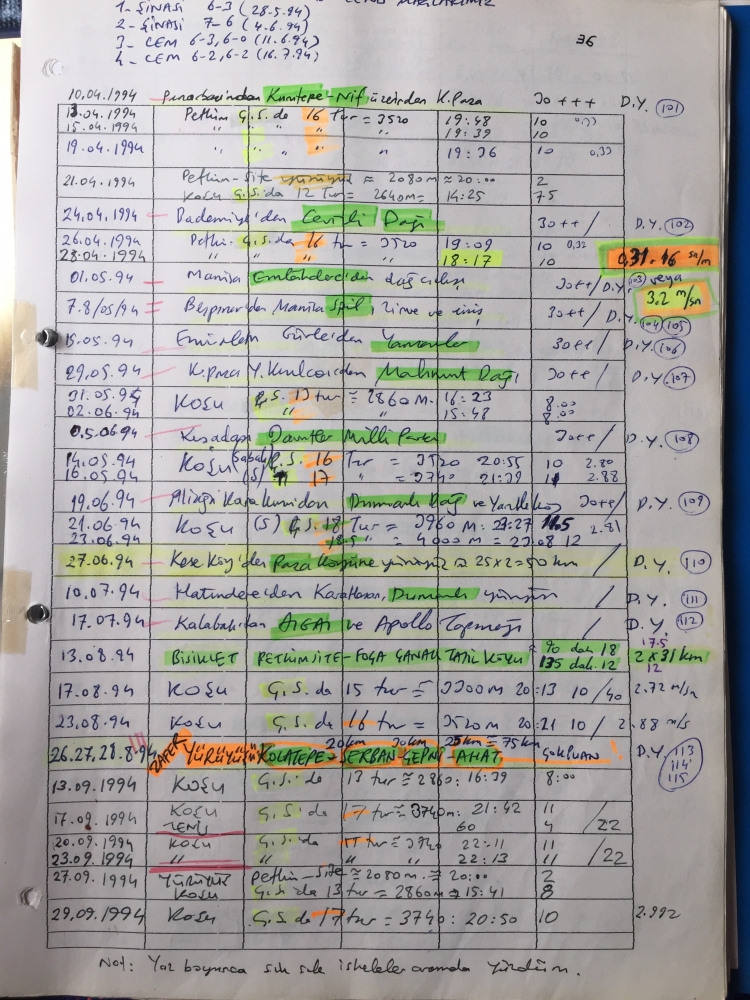 1- ŞİNASİ 6-3 (28.5.94)
2- ŞİNASİ 7-6 (4.6.94)
3- CEM 6-3, 6-0 (11.6.94)
4- CEM 6-2, 6-2 (16.7.94)
36
10.04.1994 Pınarbaşından Kurutepe-Nif üzerinden K.Paşa 30+++ D.Y. (101)
13.04.1994 Petkim G.S. de 16 Tur = 3520 19:48 10 0,33
15.04.1994 " " " " 19:39 10
19.04.1994 " " " " 19:36 10 0,33
21.04.1994 Petkim-Site yürüyüş ≈ 2080m ≈ 20:00 2
KOŞU G.S.da 12 Tur = 2640m = 14:25 7.5
24.04.1994 Bademiye'den Cevizli Dağı 30++/ D.Y. (102)
26.04.1994 Petki- G.S.da 16 tur = 3520 19:09 10 0,32
28.04.1994 " " " " 18:17 10
0,31-16 sn/m
01.05.94 Manisa dağ çıkışı 30++/ D.Y. (103) veya
3.2 m/sn
7.8/05/94 Beşpınar'dan Manisa Spil, Zirve ve iniş 30++/ D.Y. (104) (105)
15.05.94 Emiralem Yamanlar 30++/ D.Y. (106)
29.05.94 K.paşa Y.Kızılca'dan Mahmut Dağı 30++/ D.Y. (107)
31.05.94 KOŞU G.S. 13 tur ≈ 2860 M. 16:23 8:00
02.06.94 " 15:48 8:00
05.0694 Kuşadası Davutlar Milli Parkı 30++/ D.Y. (108)
14.05.94 KOŞU (Sabah) G.S. 16 Tur = 3520 20:55 10 2.80
16.05.94 (S) " 17 " = 3740 21:39 11 2.88
19.06.94 Aliağa Karakuzudan Dumanlı Dağ ve 30++/ D.Y. (109)
21.06.94 KOŞU (S) G.S. 18 Tur = 3960 M: 23:27 11.5 2.81
23.06.94 18.5 " = 4000 M = 23:08 12
27.06.94 Kese Köy'den Paşa Köyüne yürüyüş ≈ 25x2=50 km / D.Y. (110)
10.07.94 Hatundere'den Karahasan, Dumanlı yürüyüş / D.Y. (111)
17.07.94 Kalabaktan AİGAİ ve Apollo Tapınağı / D.Y. (112)
13.08.94 BİSİKLET PETKİM SİTE-FOÇA ÇANAK TATİL KÖYÜ 90 dak 18 17.5
135 dak. 12 2x31 km
12
17.08.94 KOŞU G.S. de 15 tur = 3300m 20:13 10/40 2.72 m/sn
23.08.94 KOŞU G.S. de 16 tur = 3520m 20:21 10/ 2.88 m/s
20km 30km 25km = 75km
26.27.28.8.94 ZAFER YÜRÜYÜŞÜ KOCATEPE-SERBAN-ÇEPNİ-AHAT D.Y. 113
114
115
13.09.1994 KOŞU G.S. de 13 tur ≈ 2860: 16:39 8:00
17.09.1994 KOŞU G.S.de 17 tur ≈ 3740m: 21:42 11
TENİS 60 4 /22
20.09.1994 KOŞU G.S.da 17 tur ≈ 3740 22:11 11
23.09.1994 " " " " 22:13 11 /22
27.09.1994 YÜRÜYÜŞ petkim-site ≈ 2080m. ≈ 20:00 2
KOŞU G.S. da 13 tur = 2860m ⇒ 15:41 8
29.09.1994 KOŞU G.S. da 17 tur = 3740: 20:50 10 2.992
Not: Yaz boyunca sık sık iskeleler arasında yüzdüm.